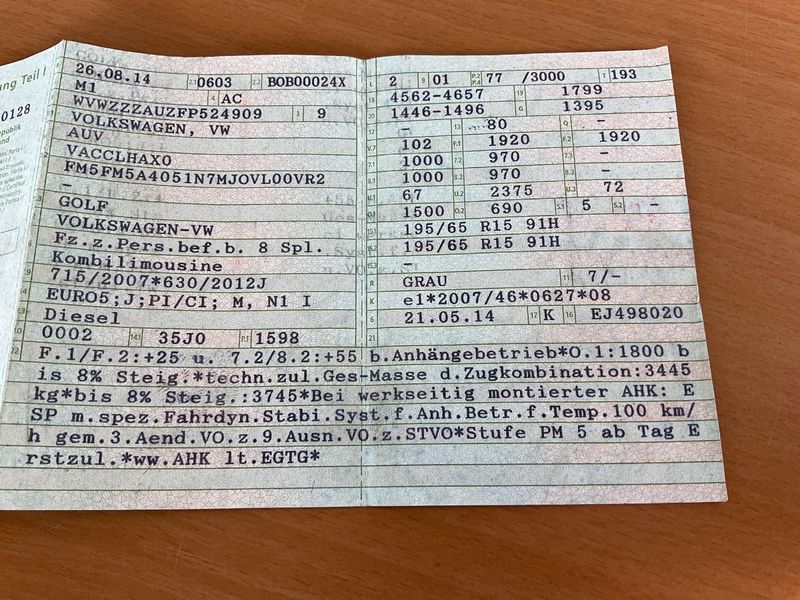 ung Teil I
0128
publik
26.08.14 2.1 0603 2.2 BOB00024X
M1 4 AC
WVWZZZAUZFP524909 3 9
VOLKSWAGEN, VW
AUV
VACCLHAX0
FM5FM5A4051N7MJOVL00VR2
–
GOLF
VOLKSWAGEN-VW
Fz.z.Pers.bef.b. 8 Spl.
Kombilimousine
715/2007*630/2012J
EURO5;J;PI/CI; M, N1 I
Diesel
0002 14.1 35J0 P.1 1598
L 2 9 01 P.2 P.4 77 /3000 T 193
18 4562-4657 19 1799
20 1446-1496 G 1395
12 – 13 80 Q –
V.7 102 F.1 1920 F.2 1920
7.1 1000 7.2 970 7.3 –
8.1 1000 8.2 970 8.3 –
U.1 67 U.2 2375 U.3 72
O.1 1500 O.2 690 S.1 5 S.2 –
15.1 195/65 R15 91H
15.2 195/65 R15 91H
15.3 –
R GRAU 11 7/-
K e1*2007/46*0627*08
6 21.05.14 17 K 16 EJ498020
21
22 F.1/F.2:+25 u. 7.2/8.2:+55 b.Anhängebetrieb*O.1:1800 b
is 8% Steig.*techn.zul.Ges-Masse d.Zugkombination:3445
kg*bis 8% Steig.:3745*Bei werkseitig montierter AHK: E
SP m.spez.Fahrdyn.Stabi.Syst.f.Anh.Betr.f.Temp.100 km/
h gem.3.Aend.VO.z.9.Ausn.VO.z.STVO*Stufe PM 5 ab Tag E
rstzul.*ww.AHK lt.EGTG*